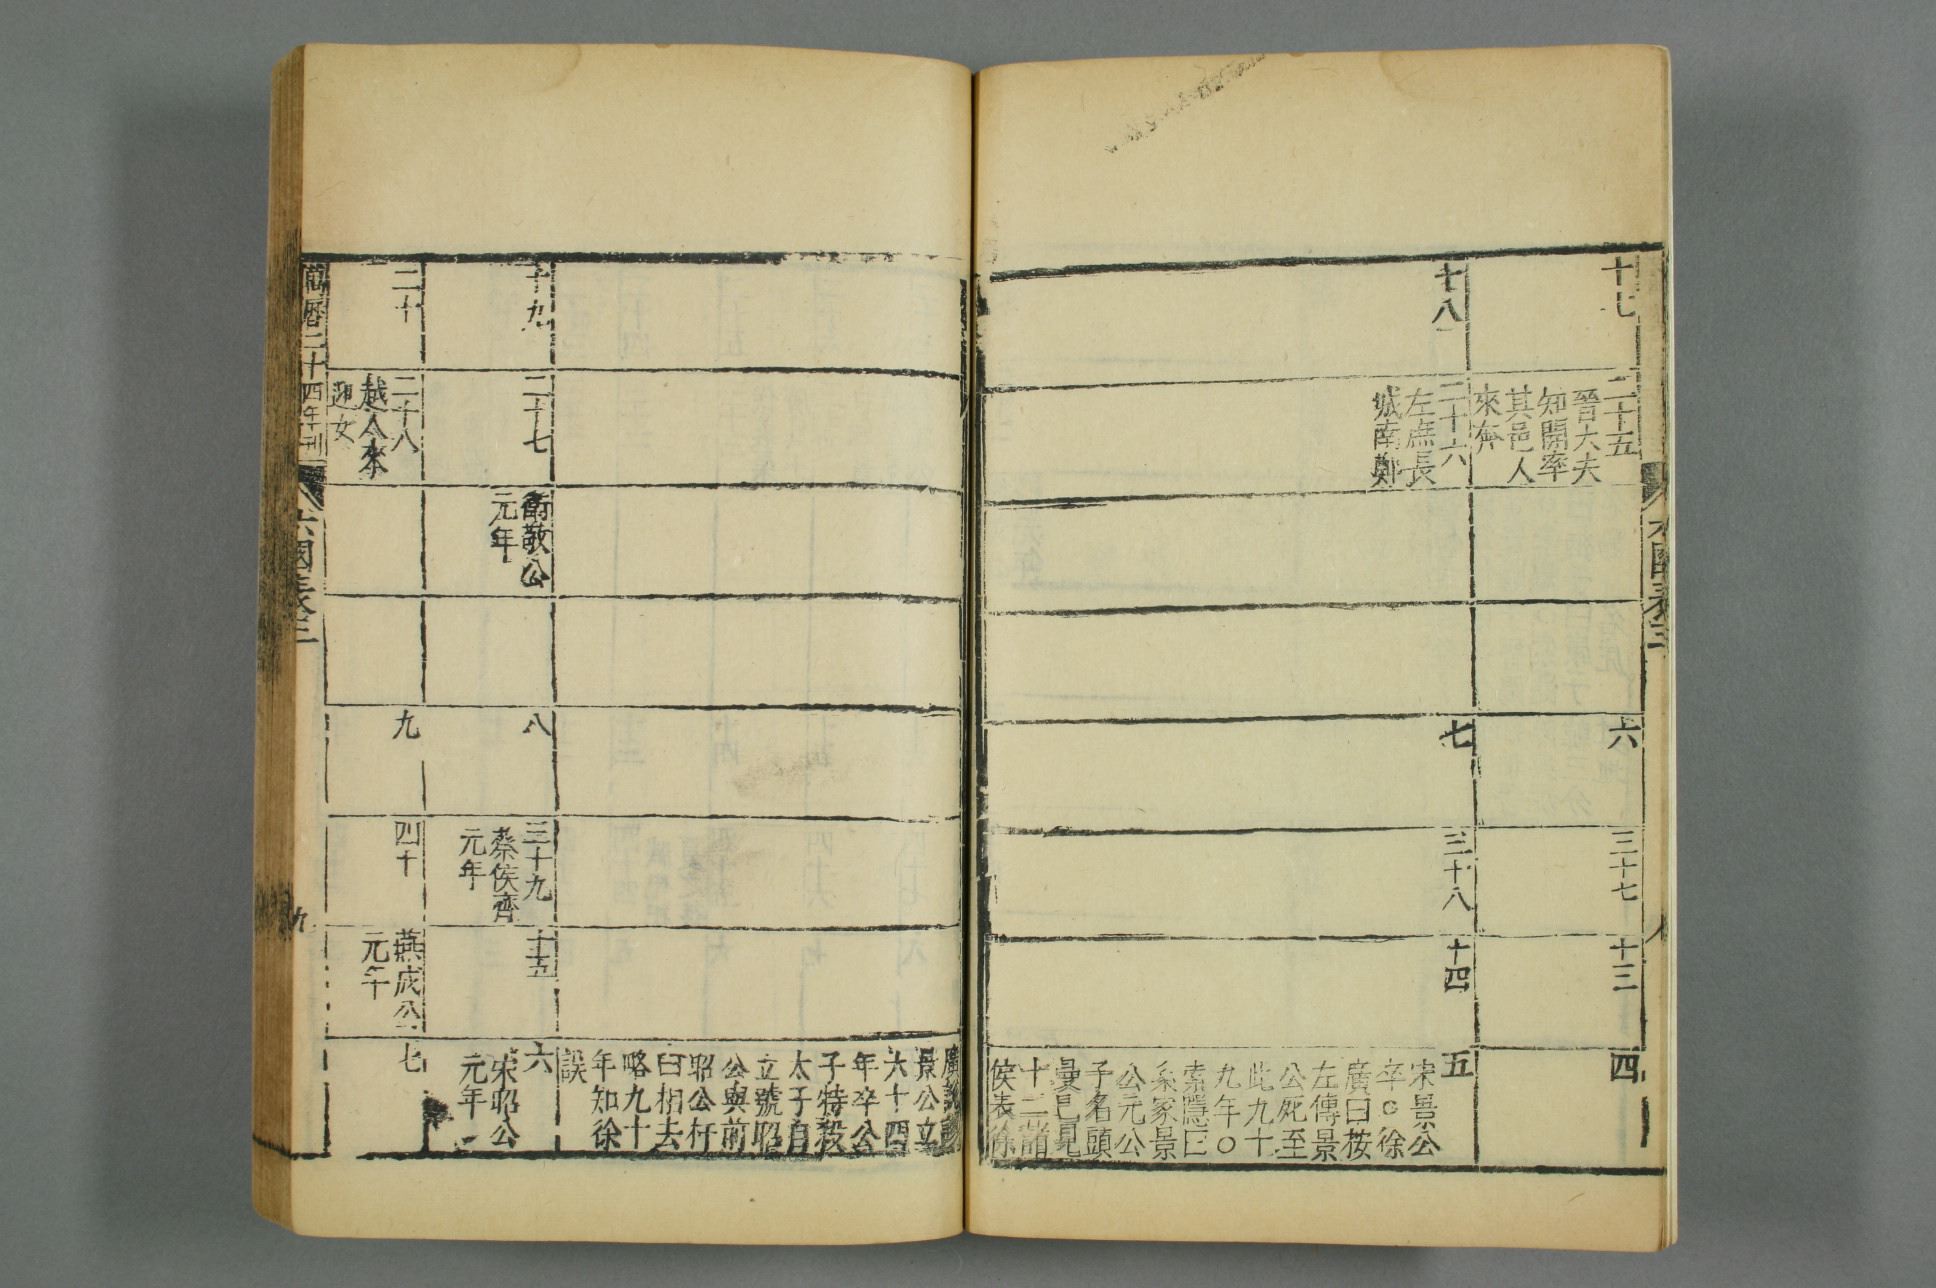 六國表三
八
十七
二十五
晉大夫
知開率
其邑人
來奔
六
三十七
十三
四
十八
二十六
左庶長
城南鄭
七
三十八
十四
五
宋景公
卒○徐
廣曰按
左傳景
公死至
此九十
九年○
索隱曰
系家景
公元公
子名頭
曼已見
十二諸
侯表徐
廣說誤
景公立
六十四
年卒公
子特殺
太子自
立號昭
公與前
昭公杵
臼相去
略九十
年知徐
誤
十九
二十七
衛敬公
元年
八
三十九
蔡侯齊
元年
十五
六
宋昭公
元年
二十
二十八
越人來
迎女
九
四十
燕成公
元年
七
萬曆二十四年刊
六國表三
九